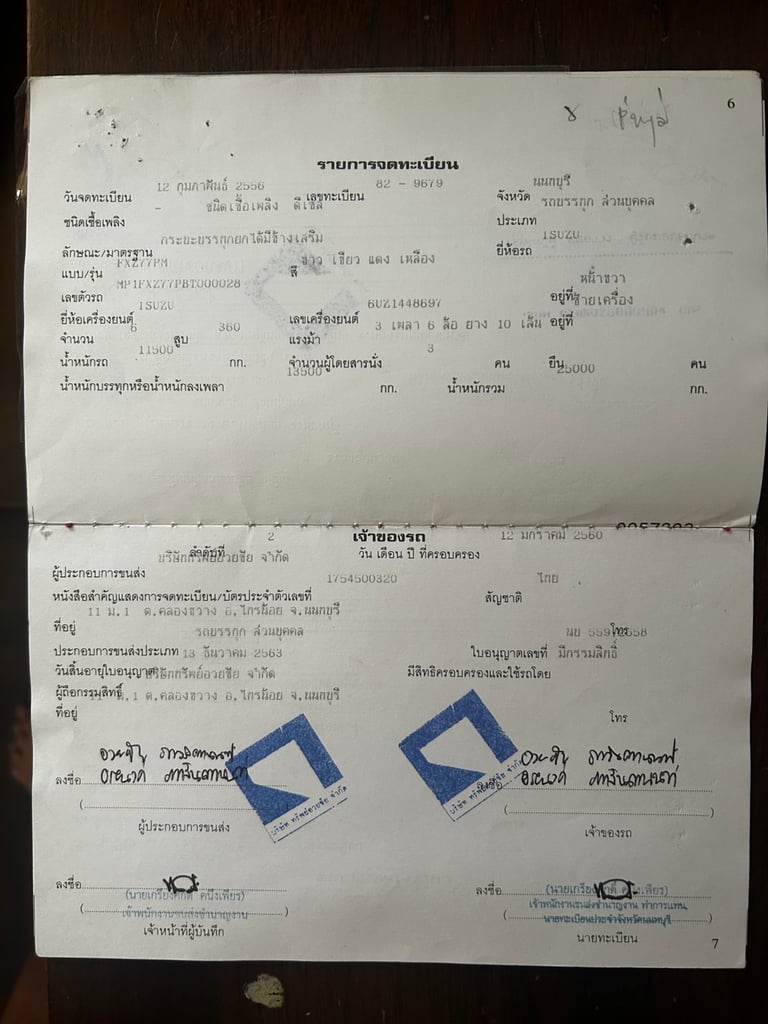 6
รายการจดทะเบียน
วันจดทะเบียน 12 กุมภาพันธ์ 2556 เลขทะเบียน 82 - 9679 จังหวัด นนทบุรี
ชนิดเชื้อเพลิง - ชนิดเชื้อเพลิง ดีเซล ประเภท รถบรรทุก ส่วนบุคคล
ลักษณะ/มาตรฐาน กระบะบรรทุกยกได้มีข้างเสริม ยี่ห้อรถ ISUZU
แบบ/รุ่น FXZ77PM สี ขาว เขียว แดง เหลือง
เลขตัวรถ MP1FXZ77PBT000028 อยู่ที่ หน้าขวา
ยี่ห้อเครื่องยนต์ ISUZU เลขเครื่องยนต์ 6UZ1448697 อยู่ที่ ซ้ายเครื่อง
จำนวน 6 สูบ 360 แรงม้า 3 เพลา 6 ล้อ ยาง 10 เส้น
น้ำหนักรถ 11500 กก. จำนวนผู้โดยสารนั่ง 3 คน ยืน คน
น้ำหนักบรรทุกหรือน้ำหนักลงเพลา 13500 กก. น้ำหนักรวม 25000 กก.
เจ้าของรถ
ลำดับที่ 2 วัน เดือน ปี ที่ครอบครอง 12 มกราคม 2560
ผู้ประกอบการขนส่ง บริษัททรัพย์อวยชัย จำกัด
หนังสือสำคัญแสดงการจดทะเบียน/บัตรประจำตัวเลขที่ 1754500320 สัญชาติ ไทย
ที่อยู่ 11 ม.1 ต.คลองขวาง อ.ไทรน้อย จ.นนทบุรี โทร
ประกอบการขนส่งประเภท รถบรรทุก ส่วนบุคคล ใบอนุญาตเลขที่
วันสิ้นอายุใบอนุญาต 13 ธันวาคม 2563 มีสิทธิครอบครองและใช้รถโดย มีกรรมสิทธิ์
ผู้ถือกรรมสิทธิ์ บริษัททรัพย์อวยชัย จำกัด
ที่อยู่ 11 ม.1 ต.คลองขวาง อ.ไทรน้อย จ.นนทบุรี โทร
บริษัท ทรัพย์อวยชัย จำกัด
บริษัท ทรัพย์อวยชัย จำกัด
ลงชื่อ ลงชื่อ
ผู้ประกอบการขนส่ง เจ้าของรถ
ลงชื่อ ลงชื่อ
(นายเกรียงศักดิ์ คนึงเพียร) (นายเกรียงศักดิ์ คนึงเพียร)
เจ้าพนักงานขนส่งชำนาญงาน เจ้าพนักงานขนส่งชำนาญงาน ทำการแทน
นายทะเบียนประจำจังหวัดนนทบุรี
เจ้าหน้าที่ผู้บันทึก นายทะเบียน
7